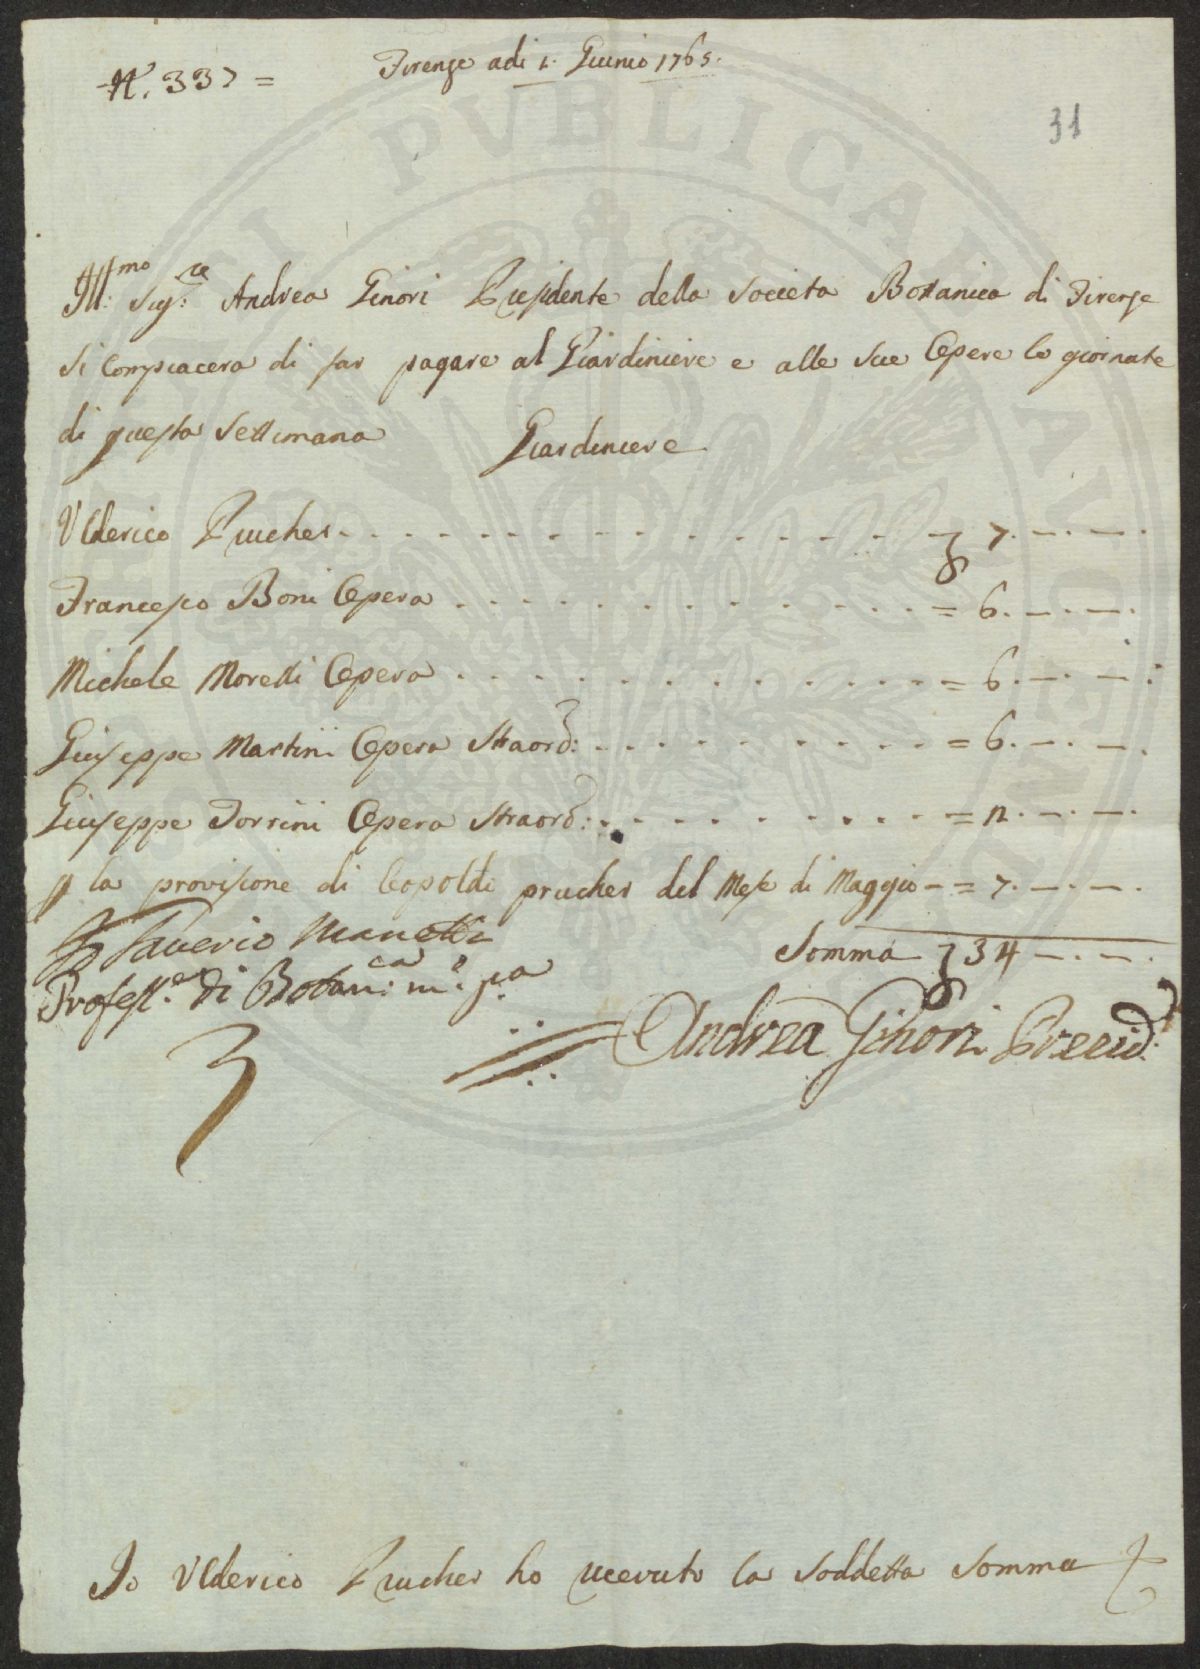 N.° 337 =
Firenze adi 1. Giunio 1765.
31
Ill:mo Sig:re Andrea Ginori Presidente della Societa Bottanica di Firenze
si Compiacera di far pagare al Giardiniere e alle sue Opere le giornate
di questa Settimana
Giardiniere
Ulderico Prucher - - - 7. — . — .
Francesco Boni Opera - - - = 6. — . — .
Michele Moretti Opera - - - = 6. — . — .
Giuseppe Martini Opera Straord: - - - = 6. — . — .
Giuseppe Torrini Opera Straord: - - - = 2. — . — .
p la provisione di Leopoldi prucher del Mese di Maggio - = 7. — . — .
Somma 34 — . — .
Saverio Manetti
Profess.e di Botan:ca m:o p.a
Andrea Ginori Presid:
Io Ulderico Prucher ho ricevuto la Soddetta Somma
PUBLICAE